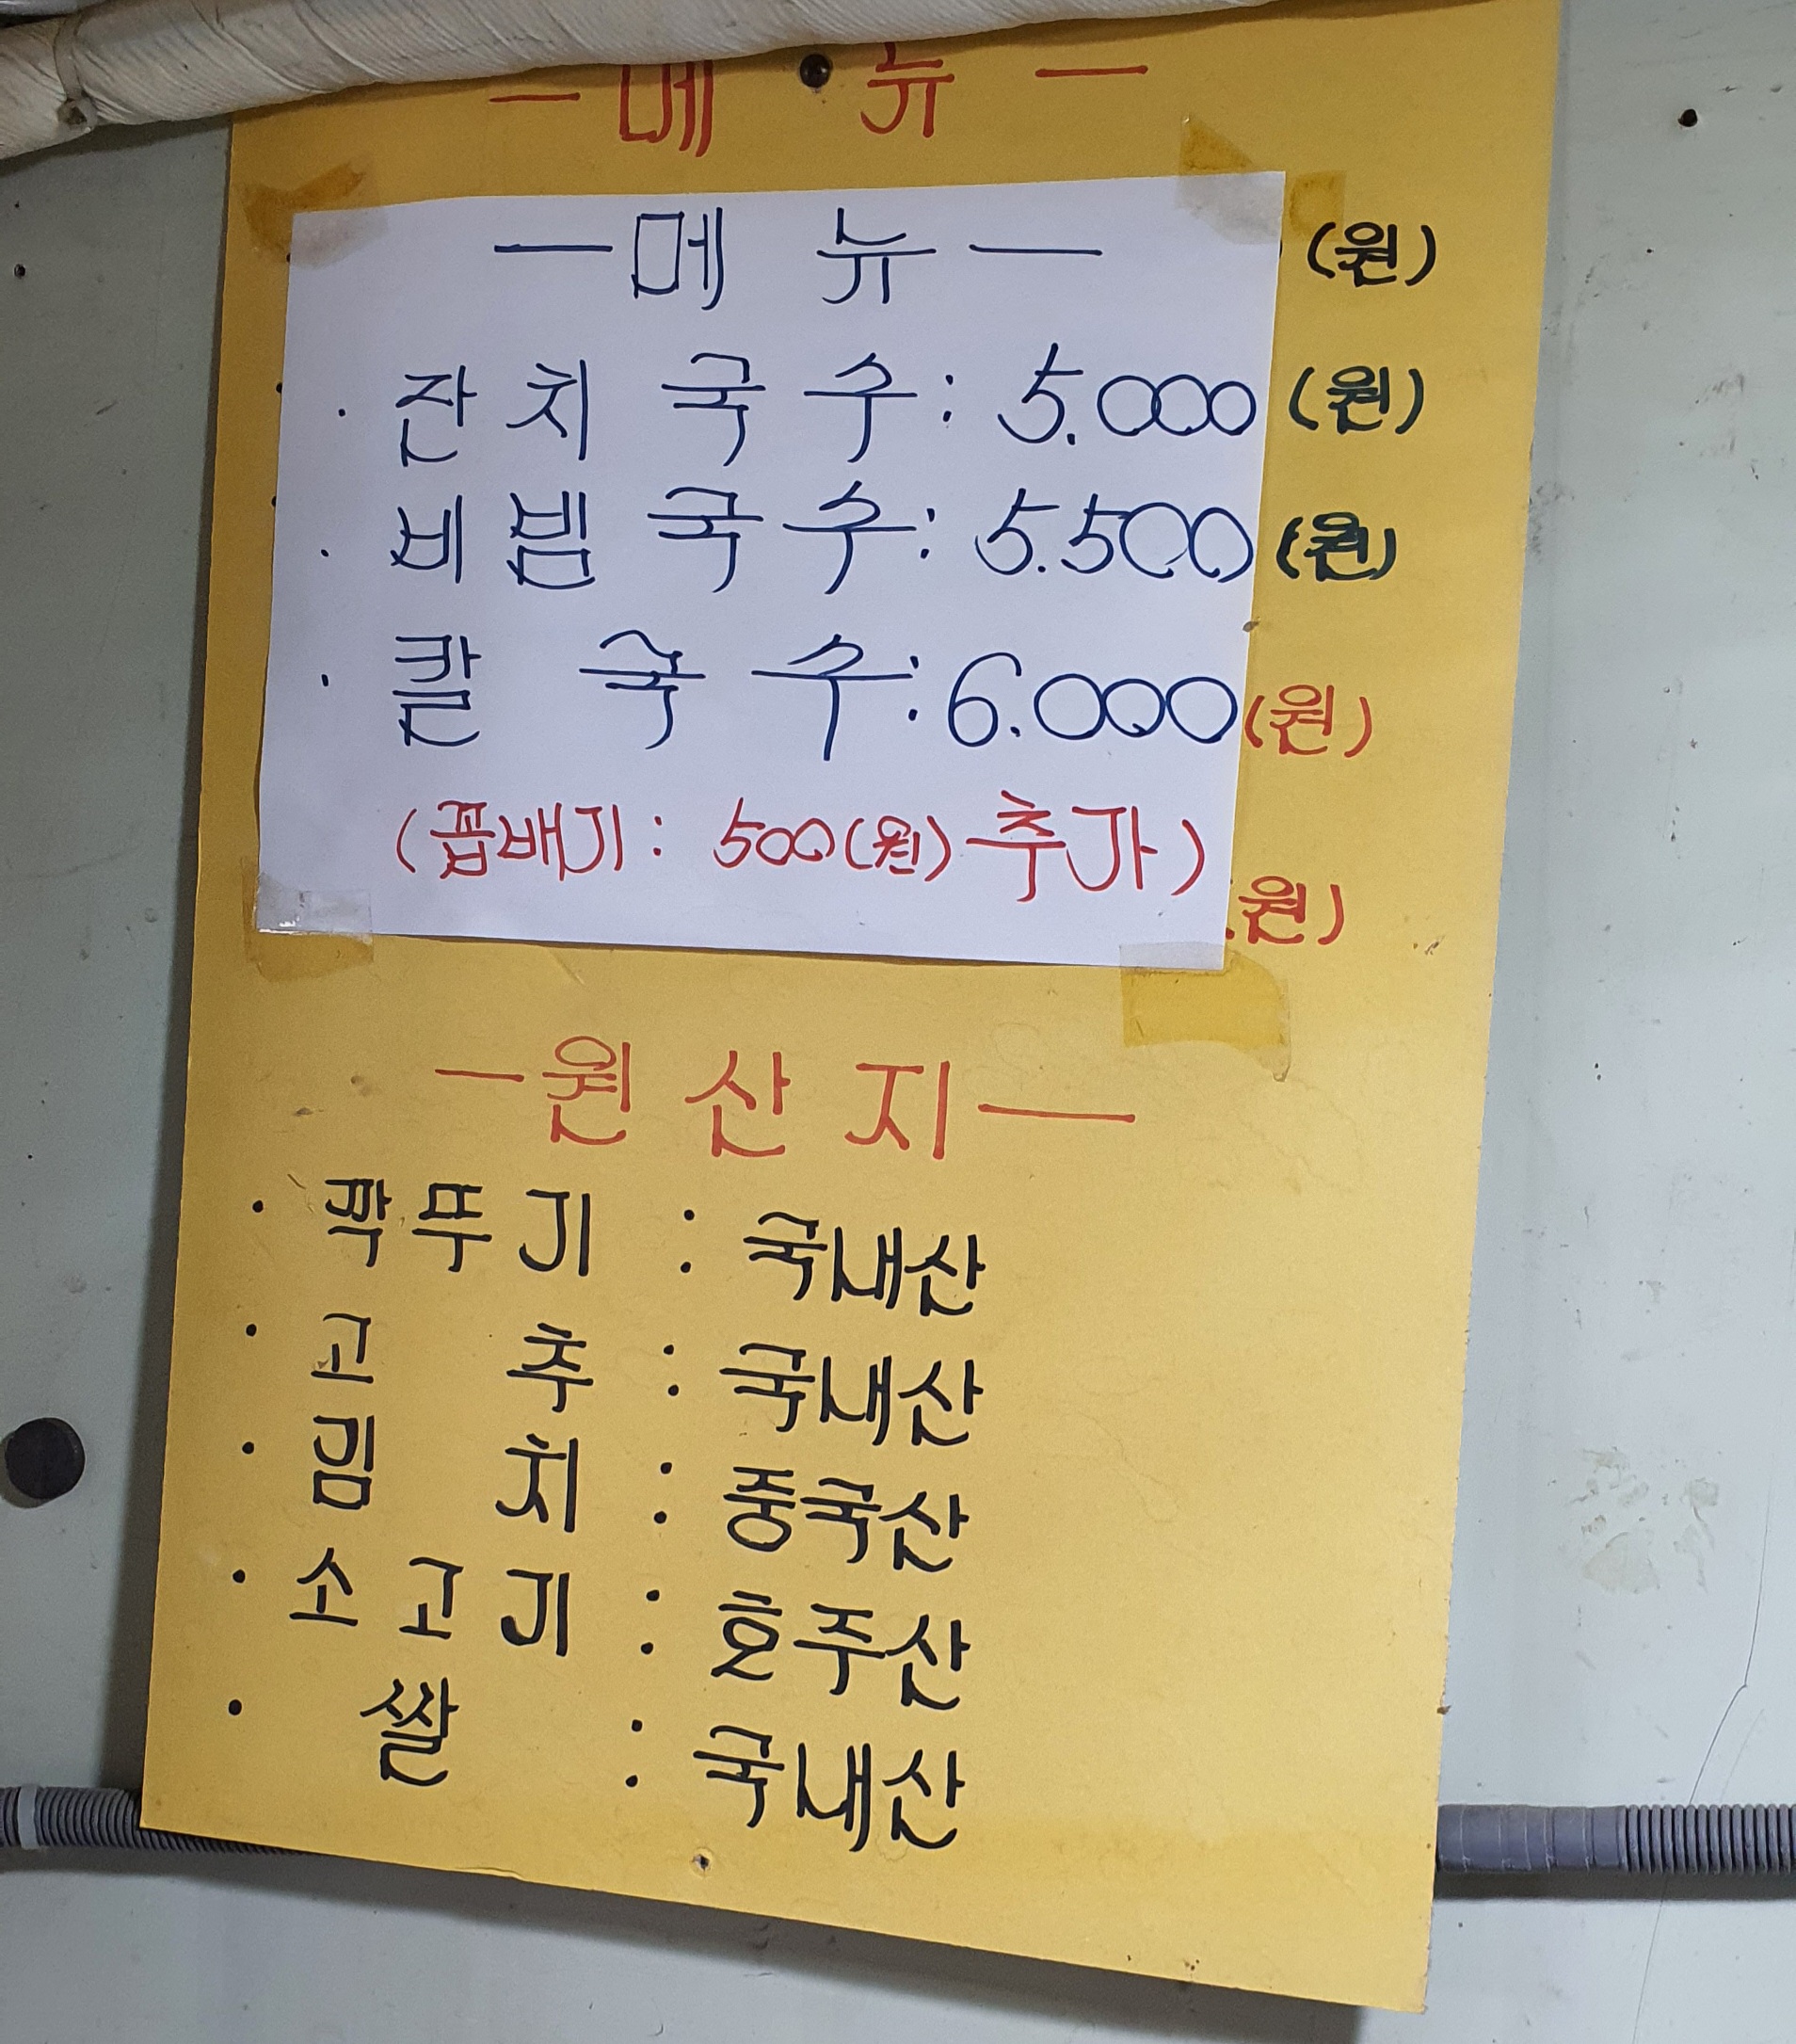 -메 뉴-
-메 뉴- (원)
· 잔치국수: 5.000 (원)
· 비빔국수: 5.500 (원)
· 칼 국 수: 6.000 (원)
(꼽배기: 500(원) 추가)
원)
-원산지-
· 깍뚜기 : 국내산
· 고 추 : 국내산
· 김 치 : 중국산
· 소고기 : 호주산
· 쌀 : 국내산